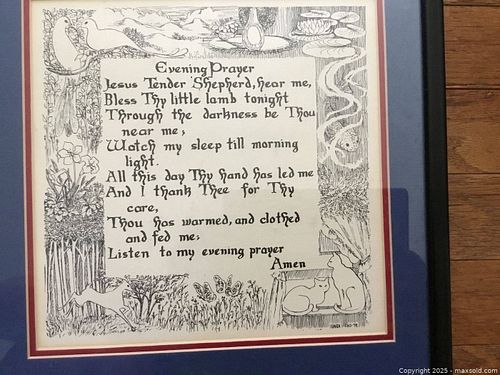 Evening Prayer
Jesus Tender Shepherd, hear me,
Bless Thy little lamb tonight
Through the darkness be Thou
near me;
Watch my sleep till morning
light.
All this day Thy hand has led me
And I thank Thee for Thy
care,
Thou has warmed, and clothed
and fed me;
Listen to my evening prayer
Amen
Copyright 2025 - maxsold.com